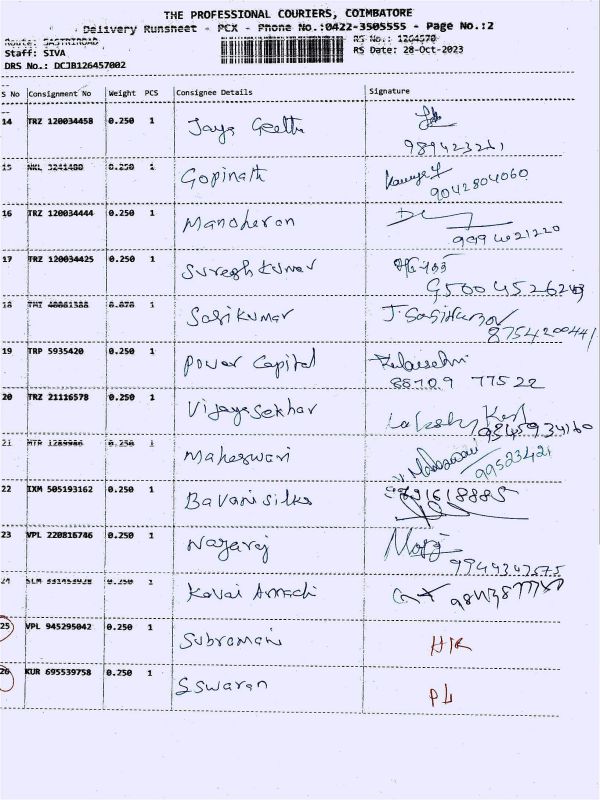 THE PROFESSIONAL COURIERS, COIMBATORE
Delivery Runsheet - PCX - Phone No.:0422-3505555 - Page No.:2
Route: SASTRIROAD RS No.: 1264570
Staff: SIVA RS Date: 28-Oct-2023
DRS No.: DCJB126457002
S No Consignment No Weight PCS Consignee Details Signature
14 TRZ 120034458 0.250 1 Jaya Geetha
989423211
15 NKL 3241480 0.250 1 Gopinath
9042804060
16 TRZ 120034444 0.250 1 Manoharan
17 TRZ 120034425 0.250 1 Sureshkumar
18 0.070 1 Sasikumar J. Sasikumar
8754200441
19 TRP 5935420 0.250 1 Power Capital
88709 77522
20 TRZ 21116578 0.250 1 Vijayasekhar
9345934160
21 MTR 1289986 0.250 1 Maheswari
99523421
22 IXM 505193162 0.250 1 Bavani silks
9791618885
23 VPL 220816746 0.250 1 Nagaraj
9944347575
24 0.250 1 Kovai Annachi
25 VPL 945295042 0.250 1 Subramani
26 KUR 695539758 0.250 1 Eswaran
PL